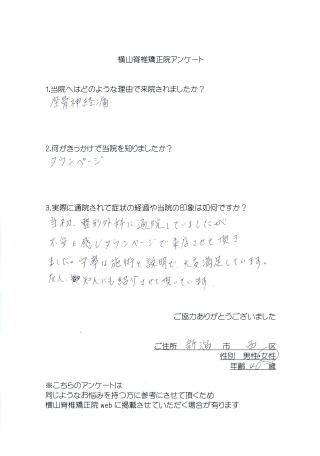 横山脊椎矯正院アンケート
1.当院へはどのような理由で来院されましたか？
坐骨神経痛
2.何がきっかけで当院を知りましたか？
タウンページ
3.実際に通院されて症状の経過や当院の印象は如何ですか？
当初、整形外科に通院していましたが
不安を感じタウンページで来店させて頂き
ました。 は施術と説明で、大変満足しています。
友人、知人にも紹介させて頂いています。
ご協力ありがとうございました
ご住所 新潟 市 西 区
性別 男性・女性
年齢 40 歳
※こちらのアンケートは
同じようなお悩みを持つ方に参考にさせて頂くため
横山脊椎矯正院 web に掲載させていただく場合が有ります